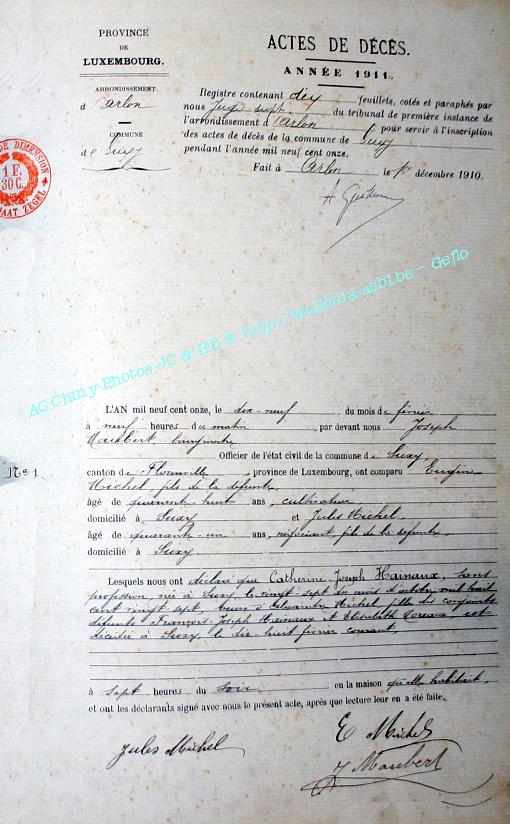 PROVINCE
DE
LUXEMBOURG.
ARRONDISSEMENT
d'Arlon
COMMUNE
de Suxy
DE DIMENSION
1 F.
30 C.
ZEGEL
ACTES DE DÉCÈS.
ANNÉE 1911.
Registre contenant dix feuillets, cotés et paraphés par
nous Juge suppt. du tribunal de première instance de
l'arrondissement d'Arlon pour servir à l'inscription
des actes de décès de la commune de Suxy
pendant l'année mil neuf cent onze.
Fait à Arlon le 1er décembre 1910.
AC.Chiny-Photos JC & HB @ http://wallonia-asbl.be - Geflo
N° 1.
L'AN mil neuf cent onze, le dix-neuf du mois de février
à neuf heures du matin par devant nous Joseph
Maubert bourgmestre
Officier de l'état civil de la commune de Suxy
canton de Florenville, province de Luxembourg, ont comparu Eugène
Michel, fils de la défunte,
âgé de quarante huit ans, cultivateur
domicilié à Suxy et Jules Michel,
âgé de quarante-un ans, négociant, fils de la défunte
domicilié à Suxy.
Lesquels nous ont déclaré que Catherine-Joseph Hainaux, sans
profession, née à Suxy, le vingt-sept du mois d'octobre mil huit
cent vingt sept, veuve d'Alexandre Michel, fille des conjoints
défunts François-Joseph Hainaux et Elisabeth, est
décédée à Suxy, le dix-huit février courant
à sept heures du soir en la maison qu'elle habitait,
et ont les déclarants signé avec nous le présent acte, après que lecture leur en a été faite.
Jules Michel
E Michel
J Maubert